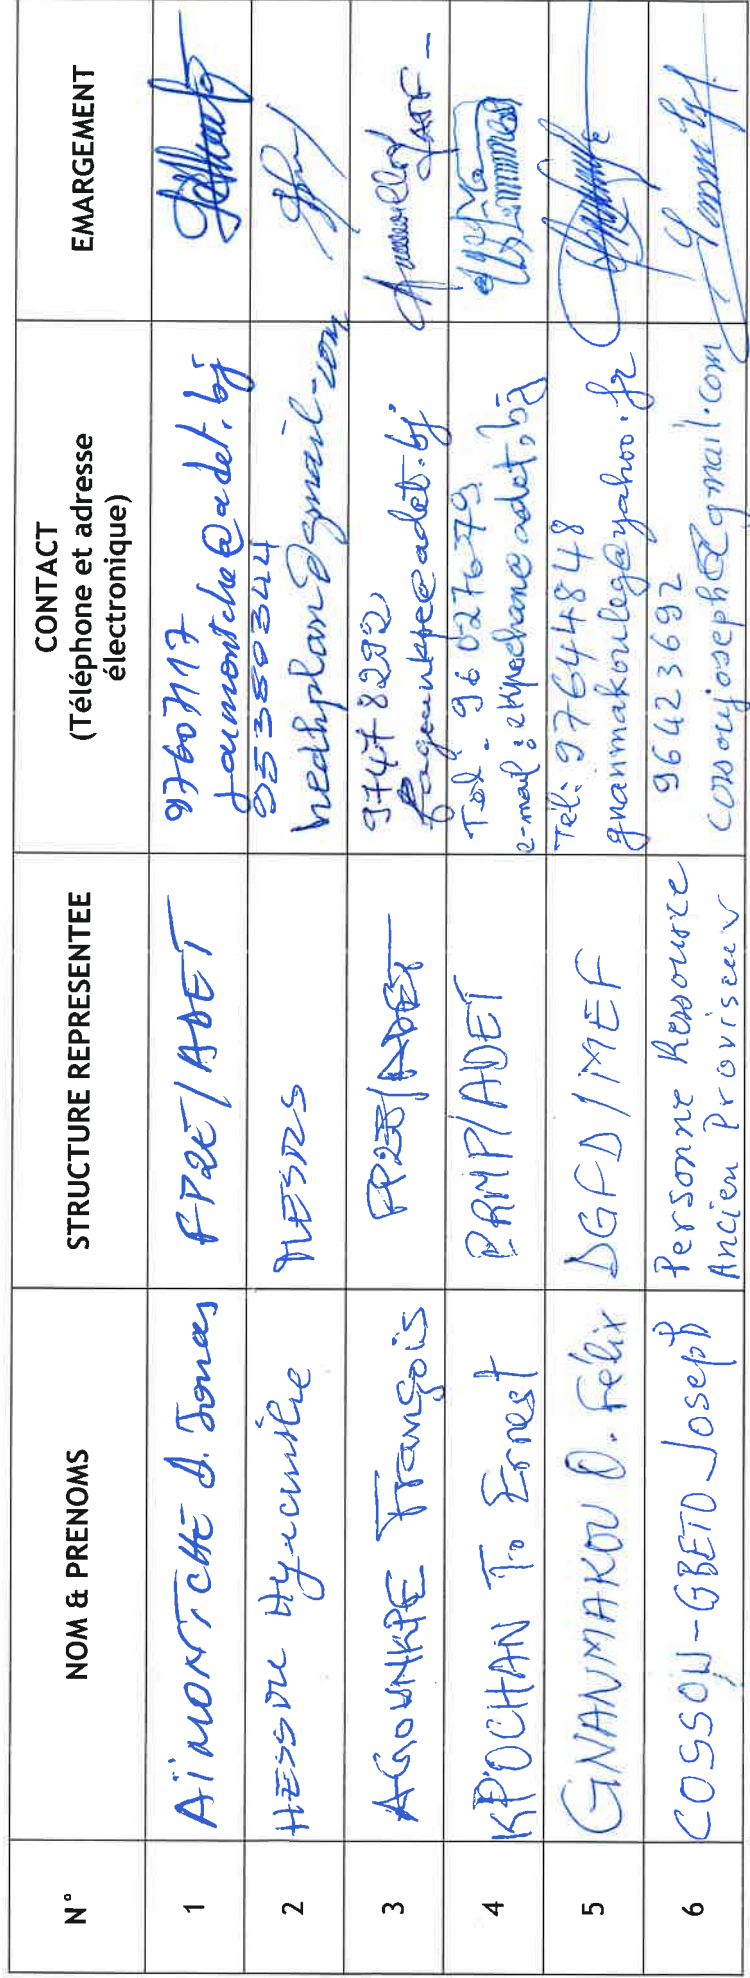 N° NOM & PRENOMS STRUCTURE REPRESENTEE CONTACT EMARGEMENT
(Téléphone et adresse
électronique)
1 AÏMONTCHE D. Jonas FP2E/ADET
@adet.bj
2 HESSOU Hyacinthe MESRS 95380344
hedhplan@gmail.com
3 AGOUNKPE François FP2E/ADET 97478292
fagounkpe@adet.bj
4 KPOCHAN T. Ernest PRMP/ADET Tél : 96027679
e-mail : ekpochan@adet.bj
5 GNANMAKOU D. Félix DGFD/MEF Tél: 97644848
gnanmakouleg@yahoo.fr
6 COSSOU-GBETO Joseph Personne Ressource 96423692
Ancien Proviseur cossoujoseph@gmail.com